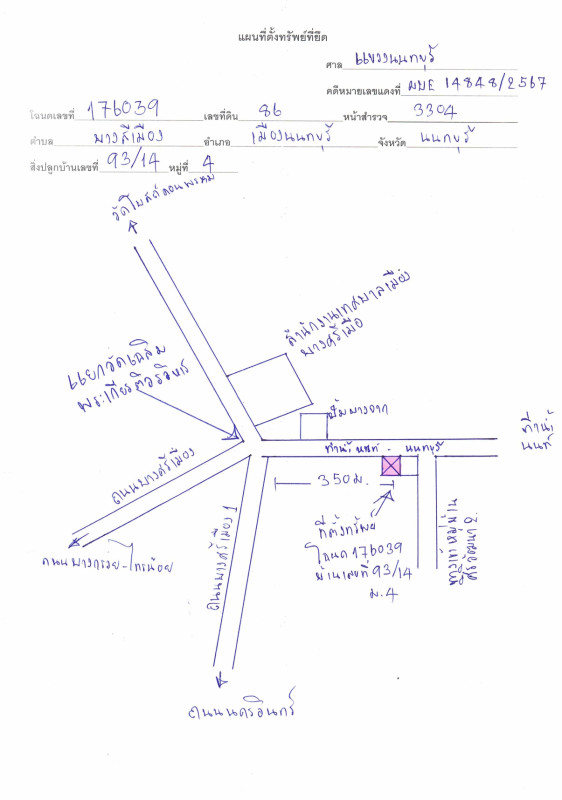 แผนที่ตั้งทรัพย์ที่ยึด
ศาล แขวงนนทบุรี
คดีหมายเลขแดงที่ ผบE 14848/2567
โฉนดเลขที่ 176039 เลขที่ดิน 86 หน้าสำรวจ 3304
ตำบล บางสีเมือง อำเภอ เมืองนนทบุรี จังหวัด นนทบุรี
สิ่งปลูกบ้านเลขที่ 93/14 หมู่ที่ 4
วัดโบสถ์ดอนพรหม
สำนักงานเทศบาลเมือง
บางศรีเมือ
แยกวัดเฉลิม
พระเกียรติวรวิหาร
ปั๊มบางจาก
ท่าน้ำ
นนท์
ท่าน้ำนนท์ - นนทบุรี
ถนนบางศรีเมือง
350 ม.
ที่ตั้งทรัพย์
โฉนด 176039
บ้านเลขที่ 93/14
ม.4
ทางเข้าหมู่บ้าน
ถนนบางกรวย-ไทรน้อย
ถนนบางศรีเมือง 1
ถนนนครอินทร์